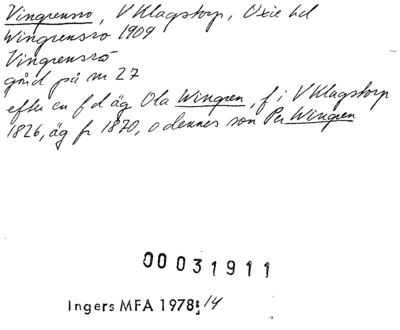 Vingrensro, V Klagstorp, Oxie hd
Wingrensro 1909
Vingrensro
gård på nr 27
efter en f d äg Ola Wingren, f i V Klagstorp
1826, äg fr 1870, o dennes son Per Wingren
00031911
Ingers MFA 1978:14